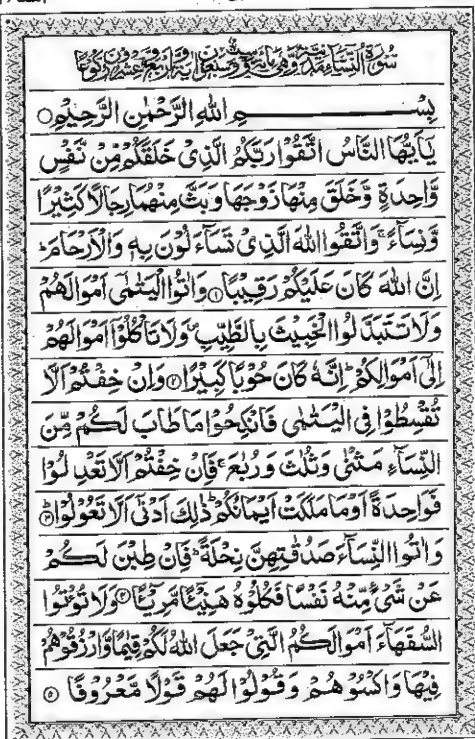 سُوۡرَةُ النِّسَآءِ مَدَنِيَّةٌ وَّهِيَ مِائَةٌ وَّسِتٌّ وَّسَبۡعُوۡنَ اٰيَةً وَّاَرۡبَعٌ وَّعِشۡرُوۡنَ رُكُوۡعًا
بِسۡمِ اللهِ الرَّحۡمٰنِ الرَّحِيۡمِ ○
يٰۤاَيُّهَا النَّاسُ اتَّقُوۡا رَبَّكُمُ الَّذِىۡ خَلَقَكُمۡ مِّنۡ نَّفۡسٍ
وَّاحِدَةٍ وَّخَلَقَ مِنۡهَا زَوۡجَهَا وَبَثَّ مِنۡهُمَا رِجَالًا كَثِيۡرًا
وَّنِسَآءً ۚ وَاتَّقُوا اللهَ الَّذِىۡ تَسَآءَلُوۡنَ بِهٖ وَالۡاَرۡحَامَ ؕ
اِنَّ اللهَ كَانَ عَلَيۡكُمۡ رَقِيۡبًا ۝۱ وَاٰتُوا الۡيَتٰمٰٓى اَمۡوَالَهُمۡ
وَلَا تَتَبَدَّلُوا الۡخَبِيۡثَ بِالطَّيِّبِ ۪ وَلَا تَاۡكُلُوۡۤا اَمۡوَالَهُمۡ
اِلٰٓى اَمۡوَالِكُمۡ ؕ اِنَّهٗ كَانَ حُوۡبًا كَبِيۡرًا ۝۲ وَاِنۡ خِفۡتُمۡ اَلَّا
تُقۡسِطُوۡا فِى الۡيَتٰمٰى فَانۡكِحُوۡا مَا طَابَ لَكُمۡ مِّنَ
النِّسَآءِ مَثۡنٰى وَثُلٰثَ وَرُبٰعَ ۚ فَاِنۡ خِفۡتُمۡ اَلَّا تَعۡدِلُوۡا
فَوَاحِدَةً اَوۡ مَا مَلَكَتۡ اَيۡمَانُكُمۡ ؕ ذٰلِكَ اَدۡنٰٓى اَلَّا تَعُوۡلُوۡا ۝۳
وَاٰتُوا النِّسَآءَ صَدُقٰتِهِنَّ نِحۡلَةً ؕ فَاِنۡ طِبۡنَ لَكُمۡ
عَنۡ شَىۡءٍ مِّنۡهُ نَفۡسًا فَكُلُوۡهُ هَنِيۡٓئًا مَّرِيۡٓئًا ۝۴ وَلَا تُؤۡتُوا
السُّفَهَآءَ اَمۡوَالَكُمُ الَّتِىۡ جَعَلَ اللهُ لَكُمۡ قِيٰمًا وَّارۡزُقُوۡهُمۡ
فِيۡهَا وَاكۡسُوۡهُمۡ وَقُوۡلُوۡا لَهُمۡ قَوۡلًا مَّعۡرُوۡفًا ۝۵